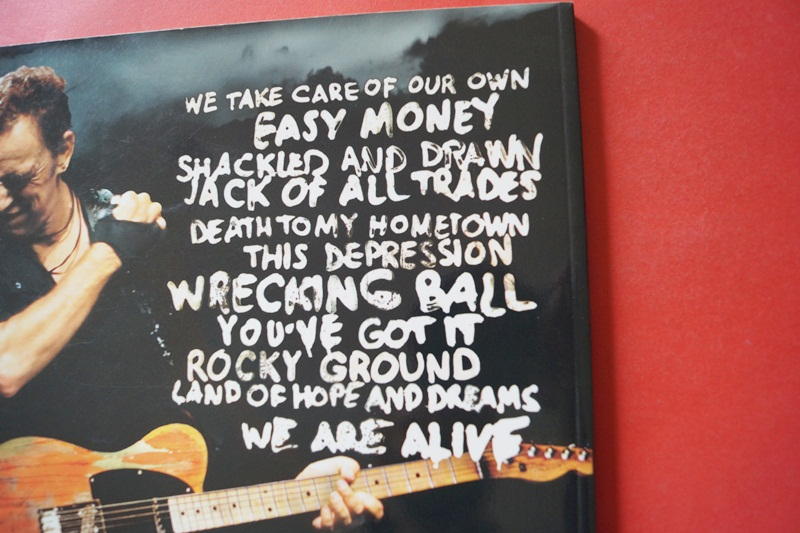 WE TAKE CARE OF OUR OWN
EASY MONEY
SHACKLED AND DRAWN
JACK OF ALL TRADES
DEATH TO MY HOMETOWN
THIS DEPRESSION
WRECKING BALL
YOU'VE GOT IT
ROCKY GROUND
LAND OF HOPE AND DREAMS
WE ARE ALIVE